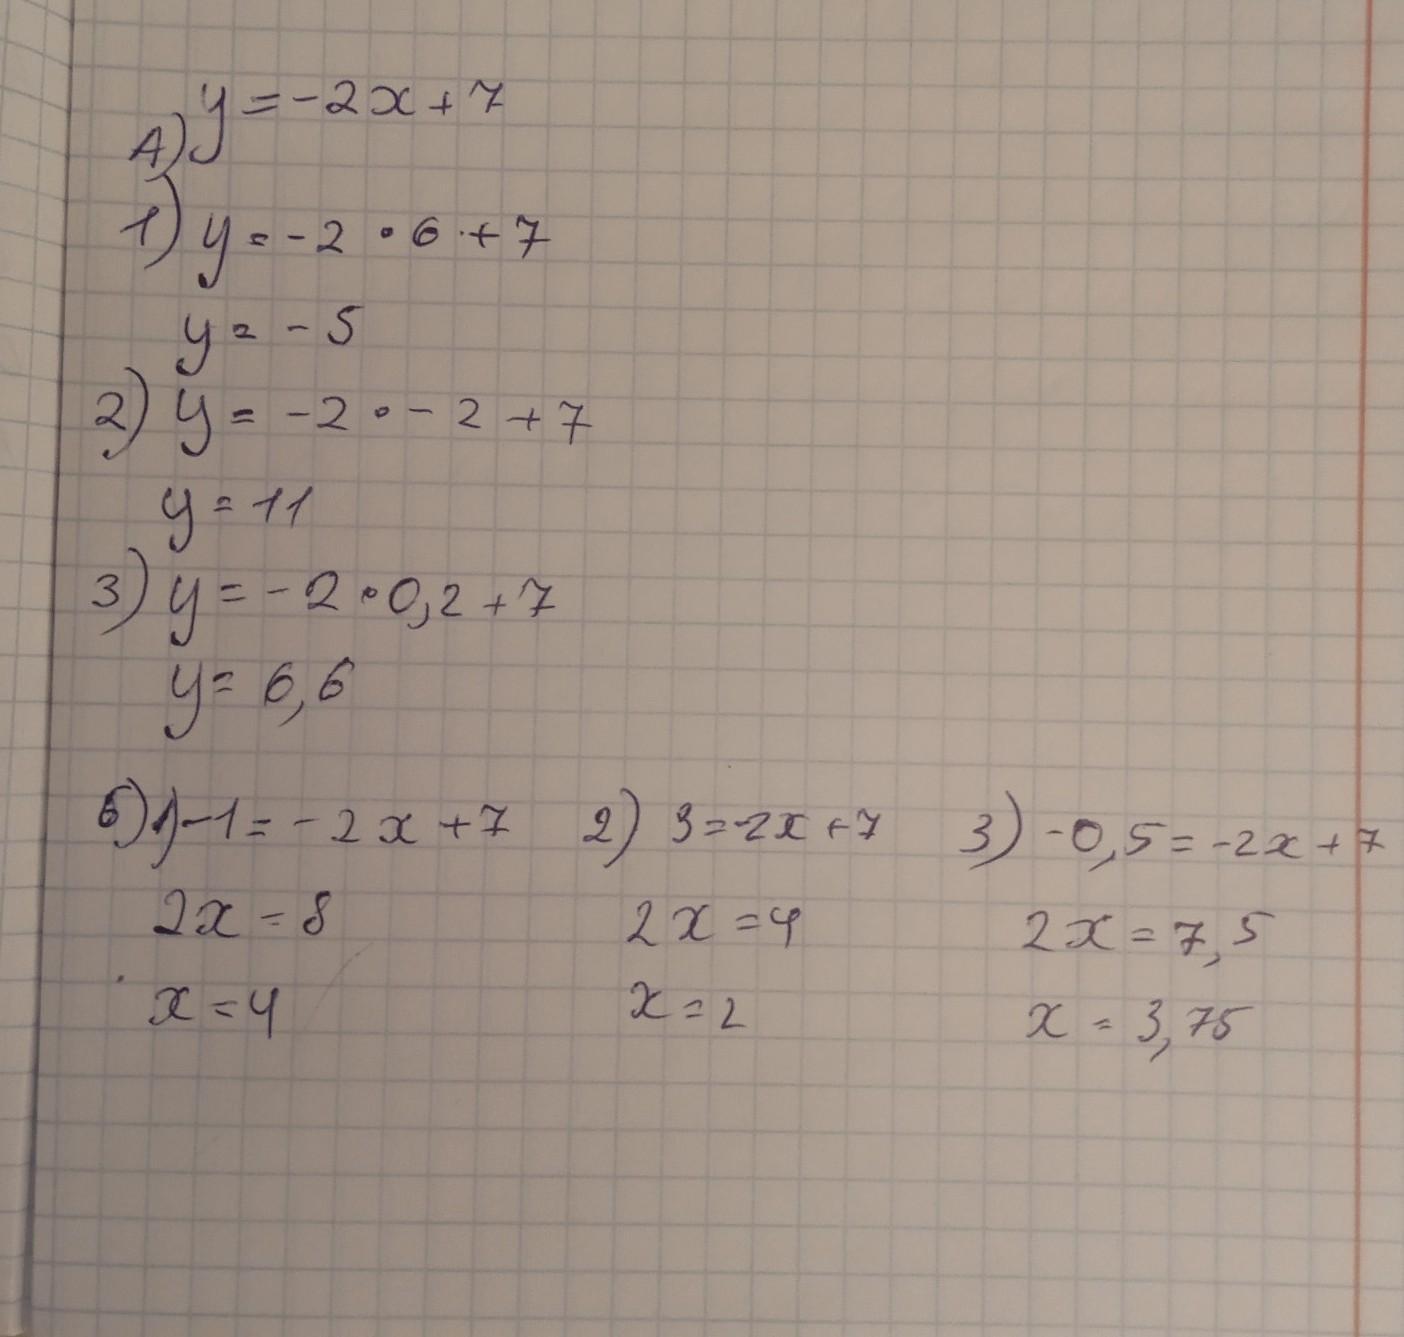 y = -2x + 7
А)
1) y = -2 · 6 + 7
y = -5
2) y = -2 · -2 + 7
y = 11
3) y = -2 · 0,2 + 7
y = 6,6
б) 1) -1 = -2x + 7 2) 3 = -2x + 7 3) -0,5 = -2x + 7
2x = 8 2x = 4 2x = 7,5
x = 4 x = 2 x = 3,75